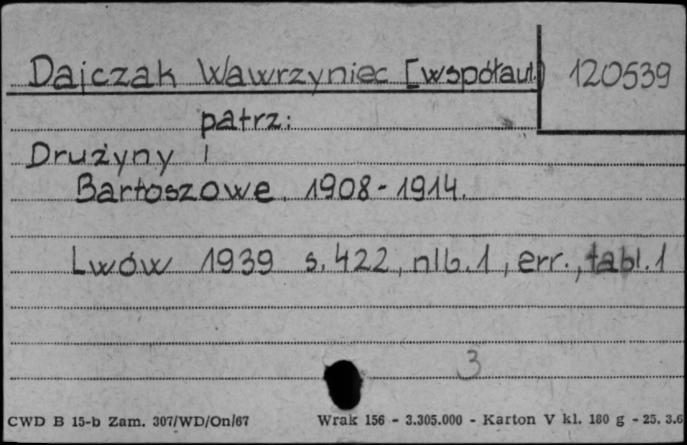 Dajczak Wawrzyniec [współaut.] 120539
patrz:
Drużyny
Bartoszowe. 1908-1914.
Lwów 1939 s. 422, nlb. 1, err., tabl. 1
3
CWD B 15-b Zam. 307/WD/On/67 Wrak 156 - 3.305.000 - Karton V kl. 180 g - 25. 3.6